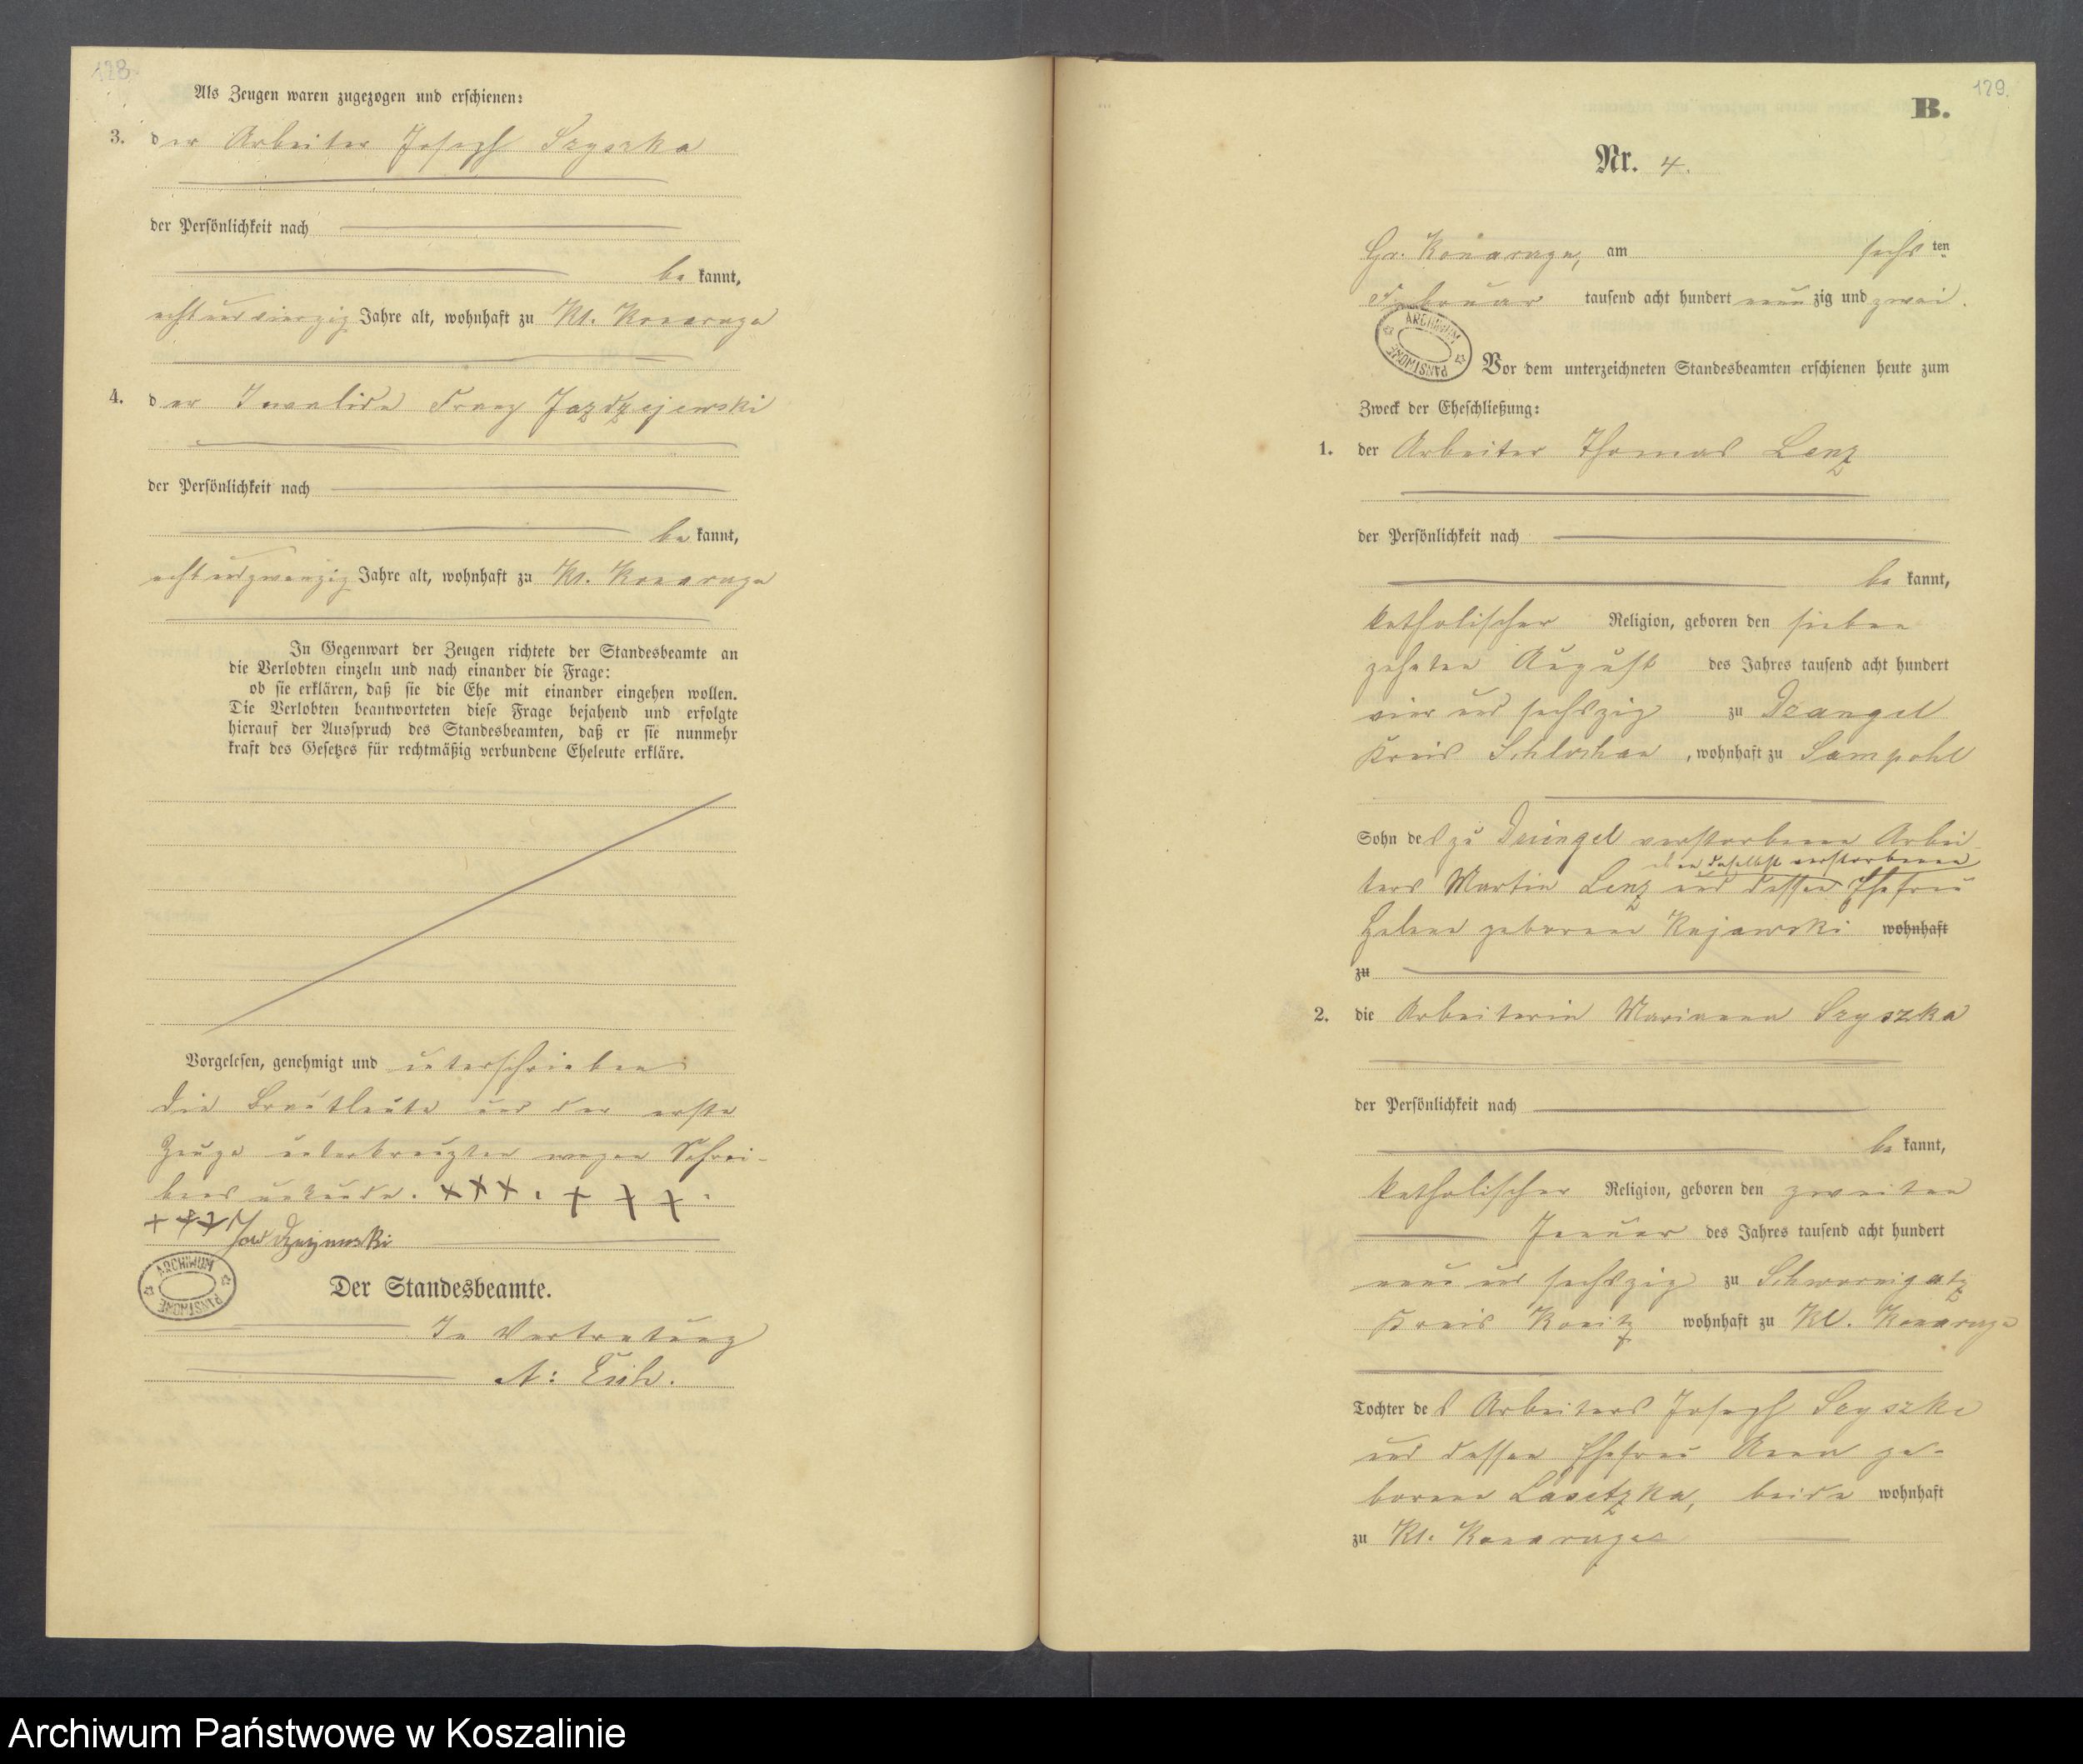 128.
Als Zeugen waren zugezogen und erschienen:
3. der Arbeiter Joseph Szyszka
der Persönlichkeit nach
be kannt,
achtundvierzig Jahre alt, wohnhaft zu Kl. Konarczyn
4. der Invalide Franz Jazdzejewski
der Persönlichkeit nach
be kannt,
achtundzwanzig Jahre alt, wohnhaft zu Kl.
In Gegenwart der Zeugen richtete der Standesbeamte an
die Verlobten einzeln und nach einander die Frage:
ob sie erklären, daß sie die Ehe mit einander eingehen wollen.
Die Verlobten beantworteten diese Frage bejahend und erfolgte
hierauf der Ausspruch des Standesbeamten, daß er sie nunmehr
kraft des Gesetzes für rechtmäßig verbundene Eheleute erkläre.
Vorgelesen, genehmigt und unterschrieben
Die Brautleute und der erste
Zeuge unterkreuzten wegen Schrei-
bens unkunde. +++. + + +.
+++
ARCHIWUM PAŃSTWOWE
Der Standesbeamte.
In Vertretung
A:
129.
B.
Nr. 4.
Gr. am sechs ten
Februar tausend acht hundert neun zig und zwei.
ARCHIWUM PAŃSTWOWE
Vor dem unterzeichneten Standesbeamten erschienen heute zum
Zweck der Eheschließung:
1. der Arbeiter Thomas Lenz
der Persönlichkeit nach
be kannt,
katholischer Religion, geboren den sieben
zehnten August des Jahres tausend acht hundert
vier und sechszig zu
Kreis Schlochau, wohnhaft zu Sampohl
Sohn des zu verstorbenen Arbei
daselbst verstorbenen
ters Martin Lenz und dessen Ehefrau
Helene geborene Kujawski wohnhaft
zu
2. die Arbeiterin Marianna Szyszka
der Persönlichkeit nach
be kannt,
katholischer Religion, geboren den zweiten
Januar des Jahres tausend acht hundert
neun und sechszig zu Schwornigatz
Kreis Konitz wohnhaft zu Kl.
Tochter des Arbeiters Joseph Szyszka
und dessen Ehefrau Anna ge-
borene Lasetzka, beide wohnhaft
zu Kl.
Archiwum Państwowe w Koszalinie